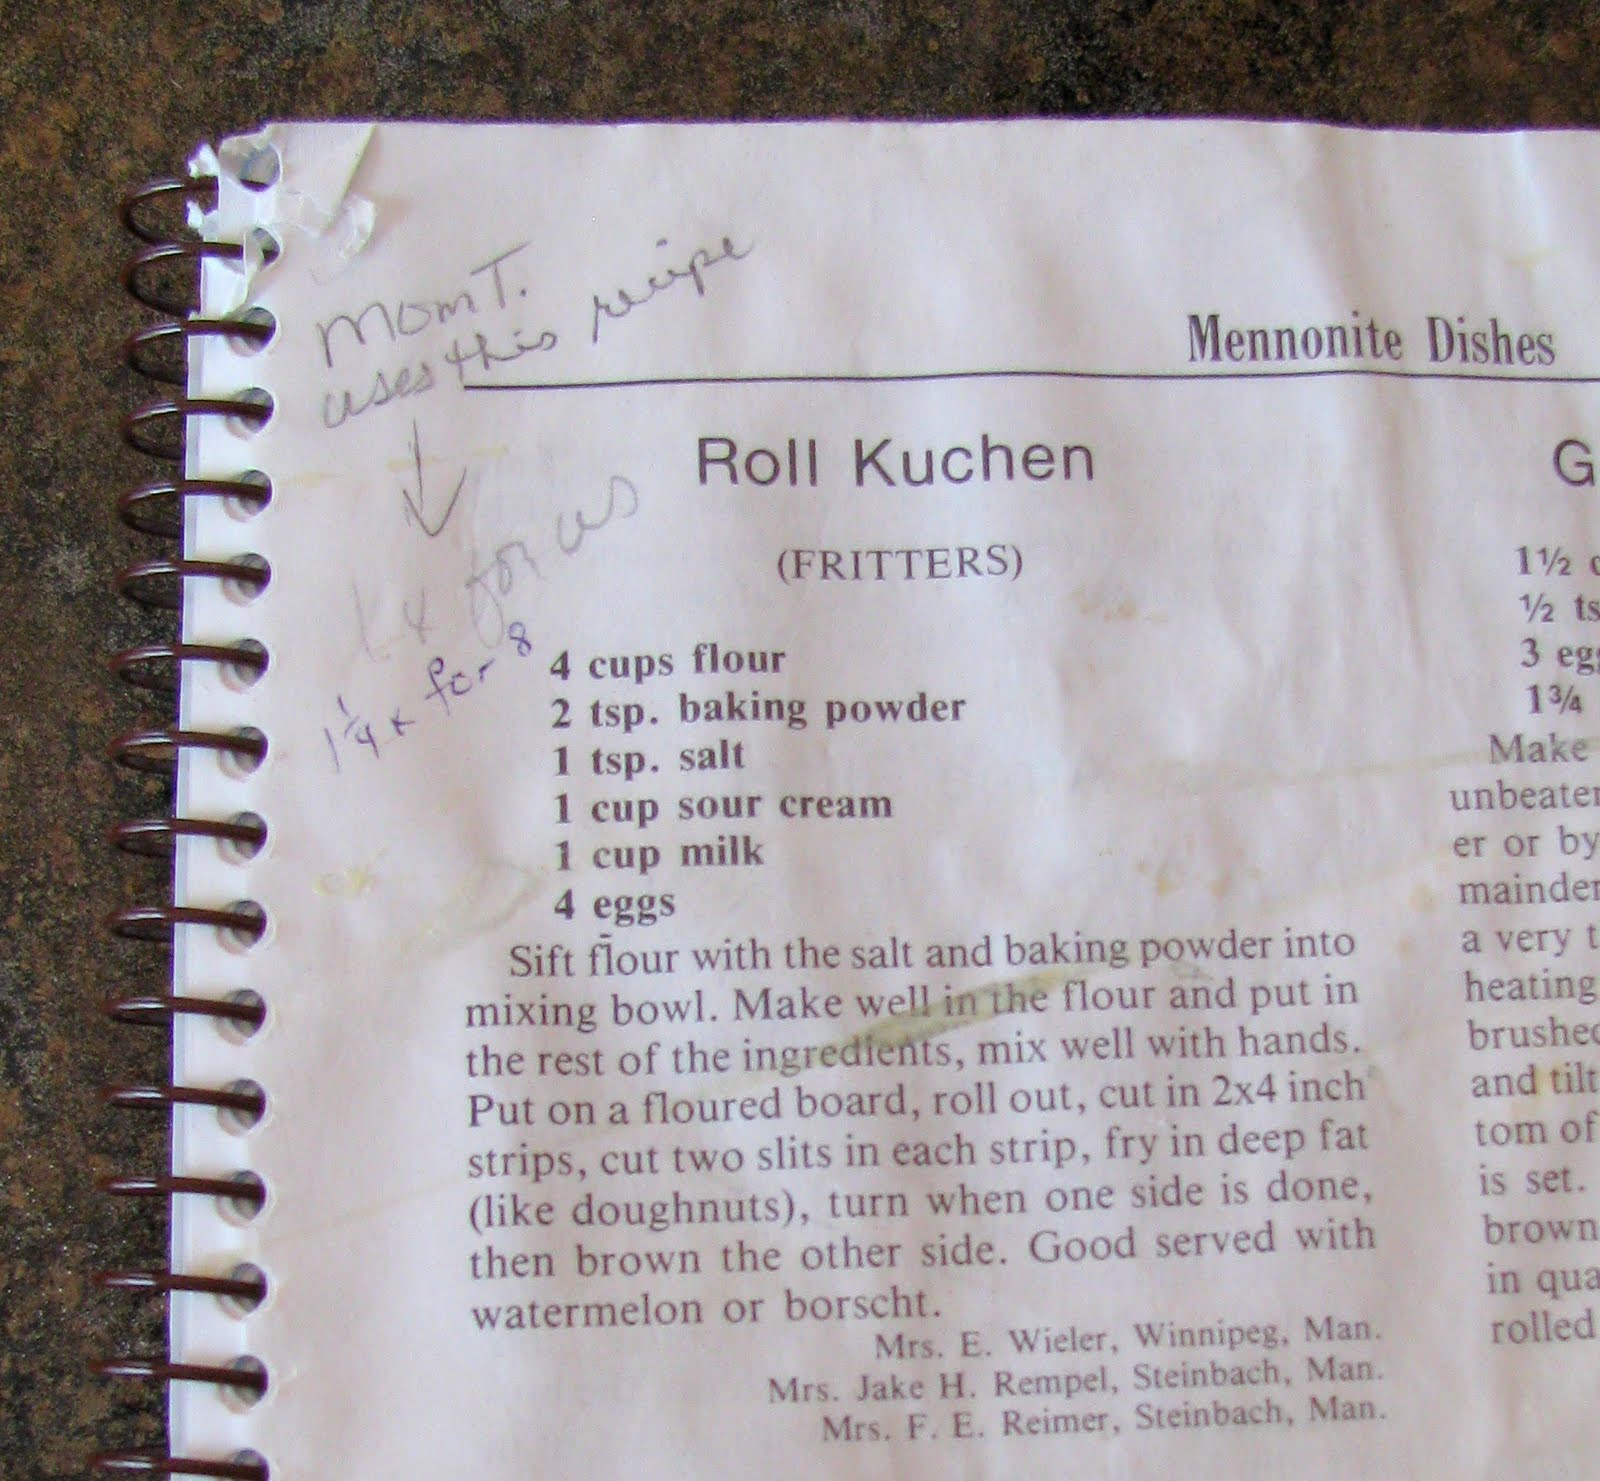 Mom T.
uses this recipe
for us
1 1/4 x for 8
Mennonite Dishes
Roll Kuchen
(FRITTERS)
4 cups flour
2 tsp. baking powder
1 tsp. salt
1 cup sour cream
1 cup milk
4 eggs
Sift flour with the salt and baking powder into
mixing bowl. Make well in the flour and put in
the rest of the ingredients, mix well with hands.
Put on a floured board, roll out, cut in 2x4 inch
strips, cut two slits in each strip, fry in deep fat
(like doughnuts), turn when one side is done,
then brown the other side. Good served with
watermelon or borscht.
Mrs. E. Wieler, Winnipeg, Man.
Mrs. Jake H. Rempel, Steinbach, Man.
Mrs. F. E. Reimer, Steinbach, Man.
G
1½ c
½ ts
3 egg
1¾
Make
unbeaten
er or by
mainder
a very t
heating
brushed
and tilt
tom of
is set.
brown
in qua
rolled